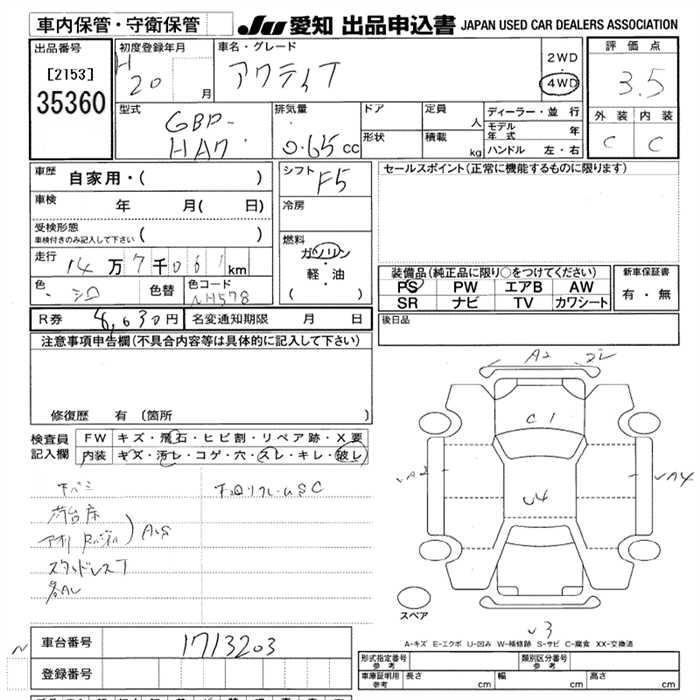 車内保管・守衛保管
JU 愛知 出品申込書 JAPAN USED CAR DEALERS ASSOCIATION
出品番号
[2153]
35360
初度登録年月
H
20
月
車名・グレード
アクティT
2WD
・
4WD
評価点
3.5
外装 内装
C C
型式
GBD-
HA7
排気量
0.65 cc
ドア
形状
定員
人
積載
kg
ディーラー・並行
モデル年式 年
ハンドル 左・右
車歴
自家用・( )
車検 年 月( 日)
受検形態
車検付きのみ記入して下さい ( )
走行
14万7千061km
色 シロ 色替
色コード
NH578
シフト
F5
冷房
燃料
ガソリン
軽・油
( )
セールスポイント(正常に機能するものに限ります)
装備品(純正品に限り○をつけてください)
PS PW エアB AW
SR ナビ TV カワシート
新車保証書
有・無
R券 8,630円 名変通知期限 月 日
後日品
注意事項申告欄(不具合内容等は具体的に記入して下さい)
修復歴 有 (箇所 )
検査員
記入欄
FW キズ・飛石・ヒビ割・リペア跡・X要
内装 キズ・汚レ・コゲ・穴・スレ・キレ・破レ
荷台床
スタッドレスT
A2
C1
U4
スペア
A-キズ E-エクボ U-凹み W-補修跡 S-サビ C-腐食 XX-交換済
車台番号 1713203
登録番号
形式指定番号
参考
類別区分番号
参考
車庫証明用
参考
長さ cm 幅 cm 高さ cm